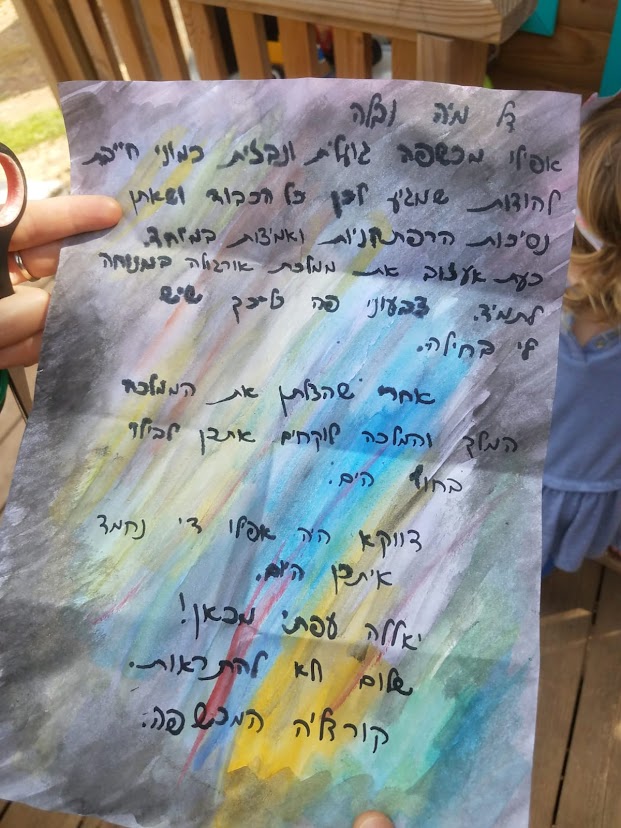 לי מיה ואלה
אפילו מכשפה גועלית ונבזית כמוני חייבת
להודות שמגיע לכן כל הכבוד ושאתן
נסיכות הרפתקניות ואמיצות במיוחד.
כעת אעזוב את ממלכת אורגולה במנוחה
לתמיד. צבעוני פה כל כך שיש
לי בחילה.
אחרי שהצלתן את הממלכה
המלך והמלכה לוקחים אתכן לבילוי
בחוף הים.
דווקא היה אפילו די נחמד
איתכן היום.
יאללה עפתי מכאן!
שלום ולא להתראות.
קורדליה המכשפה.